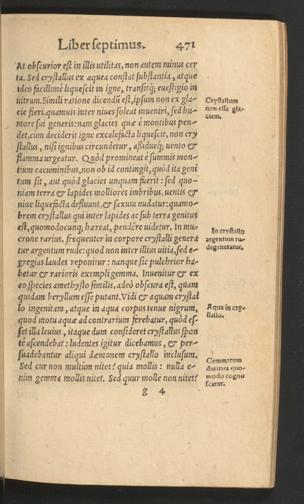 Liber septimus. 471
At obscurior est in illis utilitas, non autem minus cer
ta. Sed crystallus ex aquea constat substantia, atque
ideo facillimè liquescit in igne, transitq; euestigio in
uitrum. Simili ratione dicendũ est, ipsum non ex gla-
cie fieri, quamuis inter niues soleat inueniri, sed hu-
more sui generis: nam glacies quæ è montibus pen-
det, cum deciderit igne excalefacta liquescit, non cry
stallus, nisi ignibus circundetur, assiduéq; uento &
flamma urgeatur. Quòd prominet è summis mon-
tium cacuminibus, non ob id contingit, quòd ita geni
tum sit, aut quòd glacies unquam fuerit: sed quo-
niam terra & lapides molliores imbribus, uentis &
niue liquefacta defluunt, & saxum nudatur: quamo-
brem crystallus qui inter lapides ac sub terra genitus
est, quomodocunq; hæreat, pendére uidetur. In mu-
crone rarius, frequenter in corpore crystalli genera
tur argentum rude: quod non inter illius uitia, sed e-
gregias laudes reponitur: nanque sic pulchrior ha-
betur & rarioris exempli gemma. Inuenitur & ex
eo species amethysto similis, adeò obscura est, quam
quidam beryllum esse putant. Vidi & aquam crystal
lo ingenitam, atque in aqua corpus tenue nigrum,
quod motu aquæ ad contrarium ferebatur, quòd es-
set illa leuius, itaque dum consideret crystallus spon
te ascendebat: ludentes igitur dicebamus, & per-
suadebantur aliqui dæmonem crystallo inclusum.
Sed cur non multùm nitet? quia mollis: nulla e-
nim gemma mollis nitet. Sed quur molle non nitet?
g 4
Crystallum
non esse gla-
ciem.
In crystallo
argentum ru-
de generatur.
Aqua in cry-
stallo.
Gemmarum
durities quo-
modo cogno
scatur.